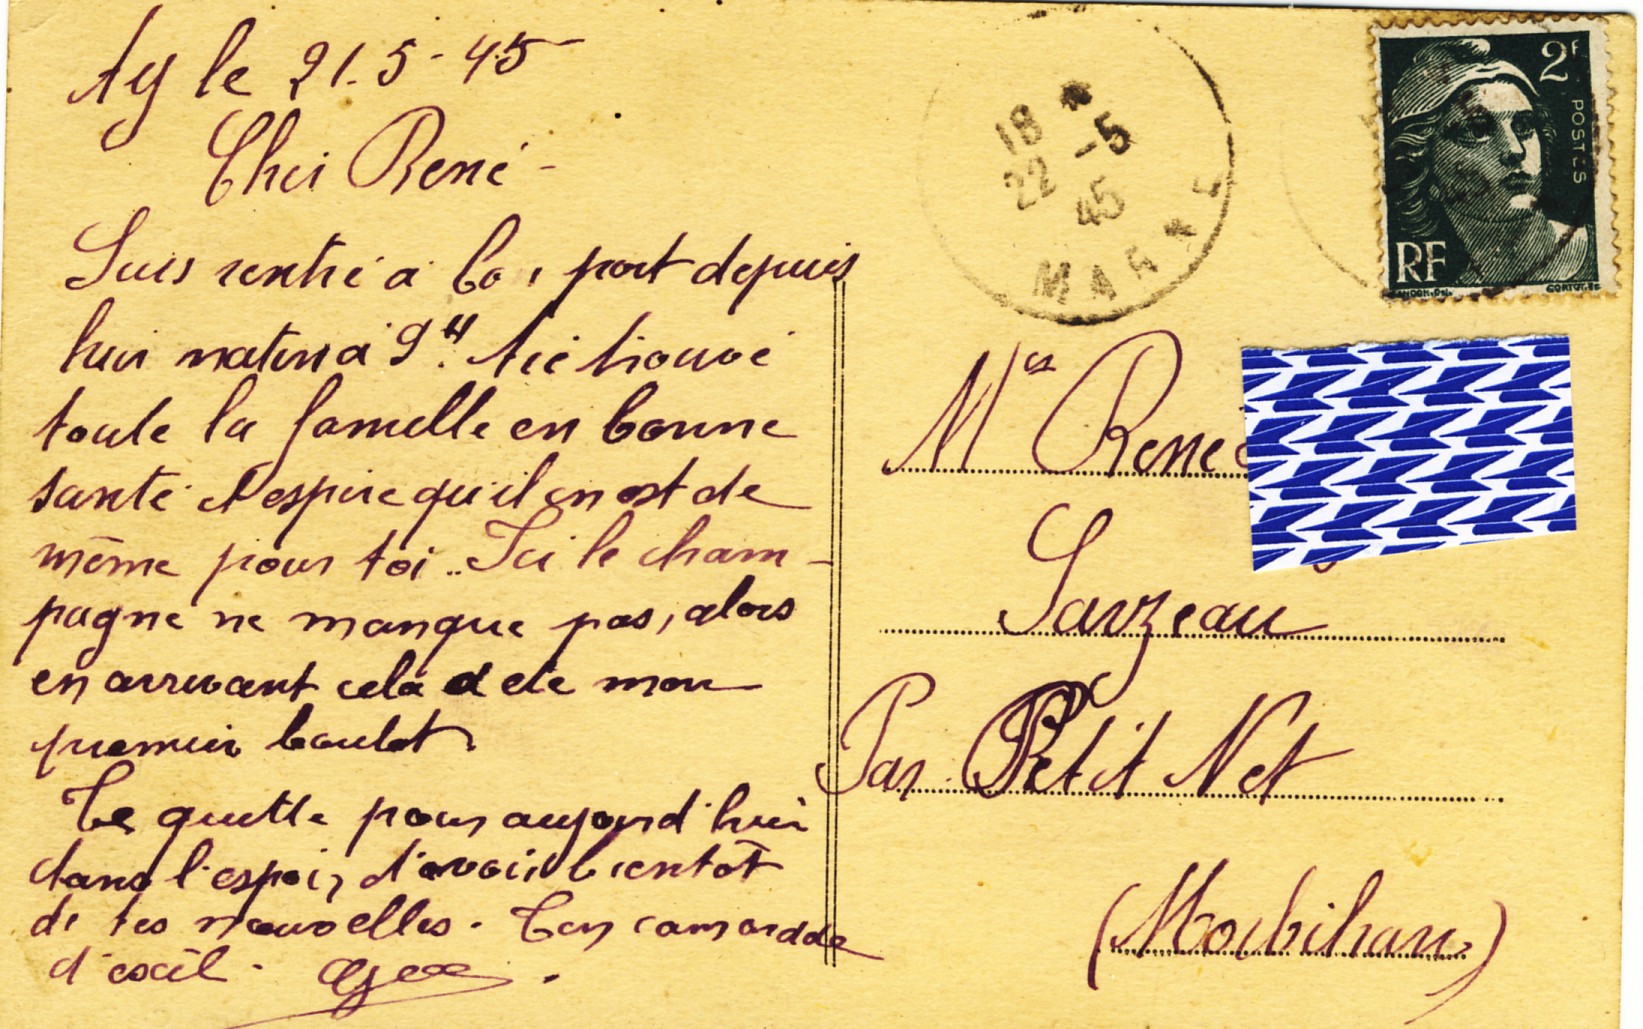 Ay le 21-5-45
Cher René -
Suis rentré à bo, port depuis
hier matin à 9H. Ai trouvé
toute la famille en bonne
santé et espère qu'il en est de
même pour toi.. Ici le cham-
pagne ne manque pas, alors
en arrivant cela a été mon
premier boulot.
Te quitte pour aujourd'hui
dans l'espoir d'avoir bientôt
de tes nouvelles. Ton camarade
d'exil.
18 *
22 -5
45
MARNE
2F
POSTES
RF
GANDON.DEL.
CORTOT.SC
Mr René
Sarzeau
Par Petit Net
(Morbihan)